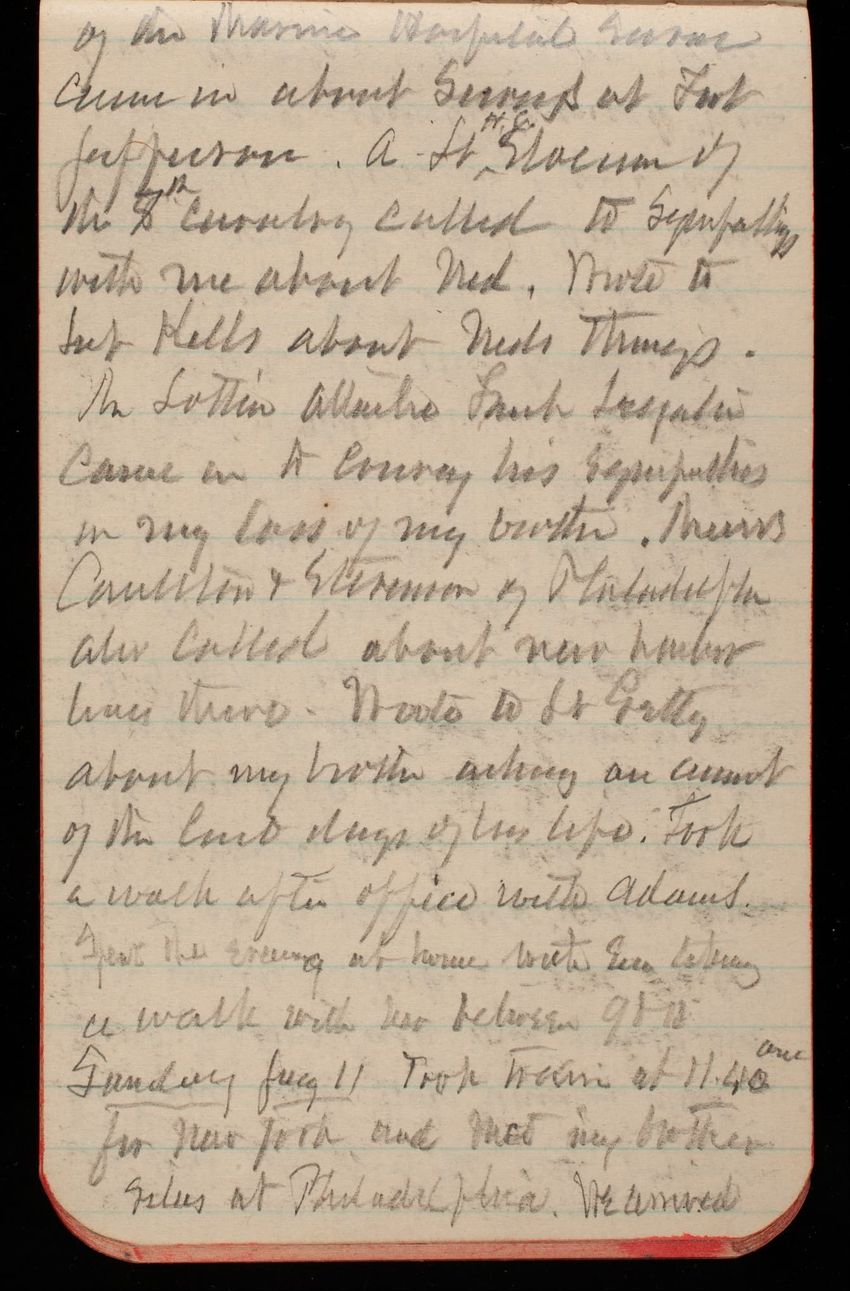 of the Marine Hospital Service
came in about Surveys at Fort
Jefferson. A Lt H.G. Slocum of
the 8th Cavalry called to Sympathy
with me about Ned. Wrote to
Lut Kells about Neds things.
The attache Frank
Came in to Convey his sympathies
in my loss of my brother. Messrs
& Stevenson of Philadelphia
also Called about new harbor
lines there. Wrote to Lt Petty
about my brother asking an account
of the last days of his life. Took
a walk after office with Adams.
Spent the evening at home with Eva taking
a walk with her between 9 & 10
Sunday Aug 11 Took train at 11.40 am
for New York and met my brother
Silas at Philadelphia. We arrived